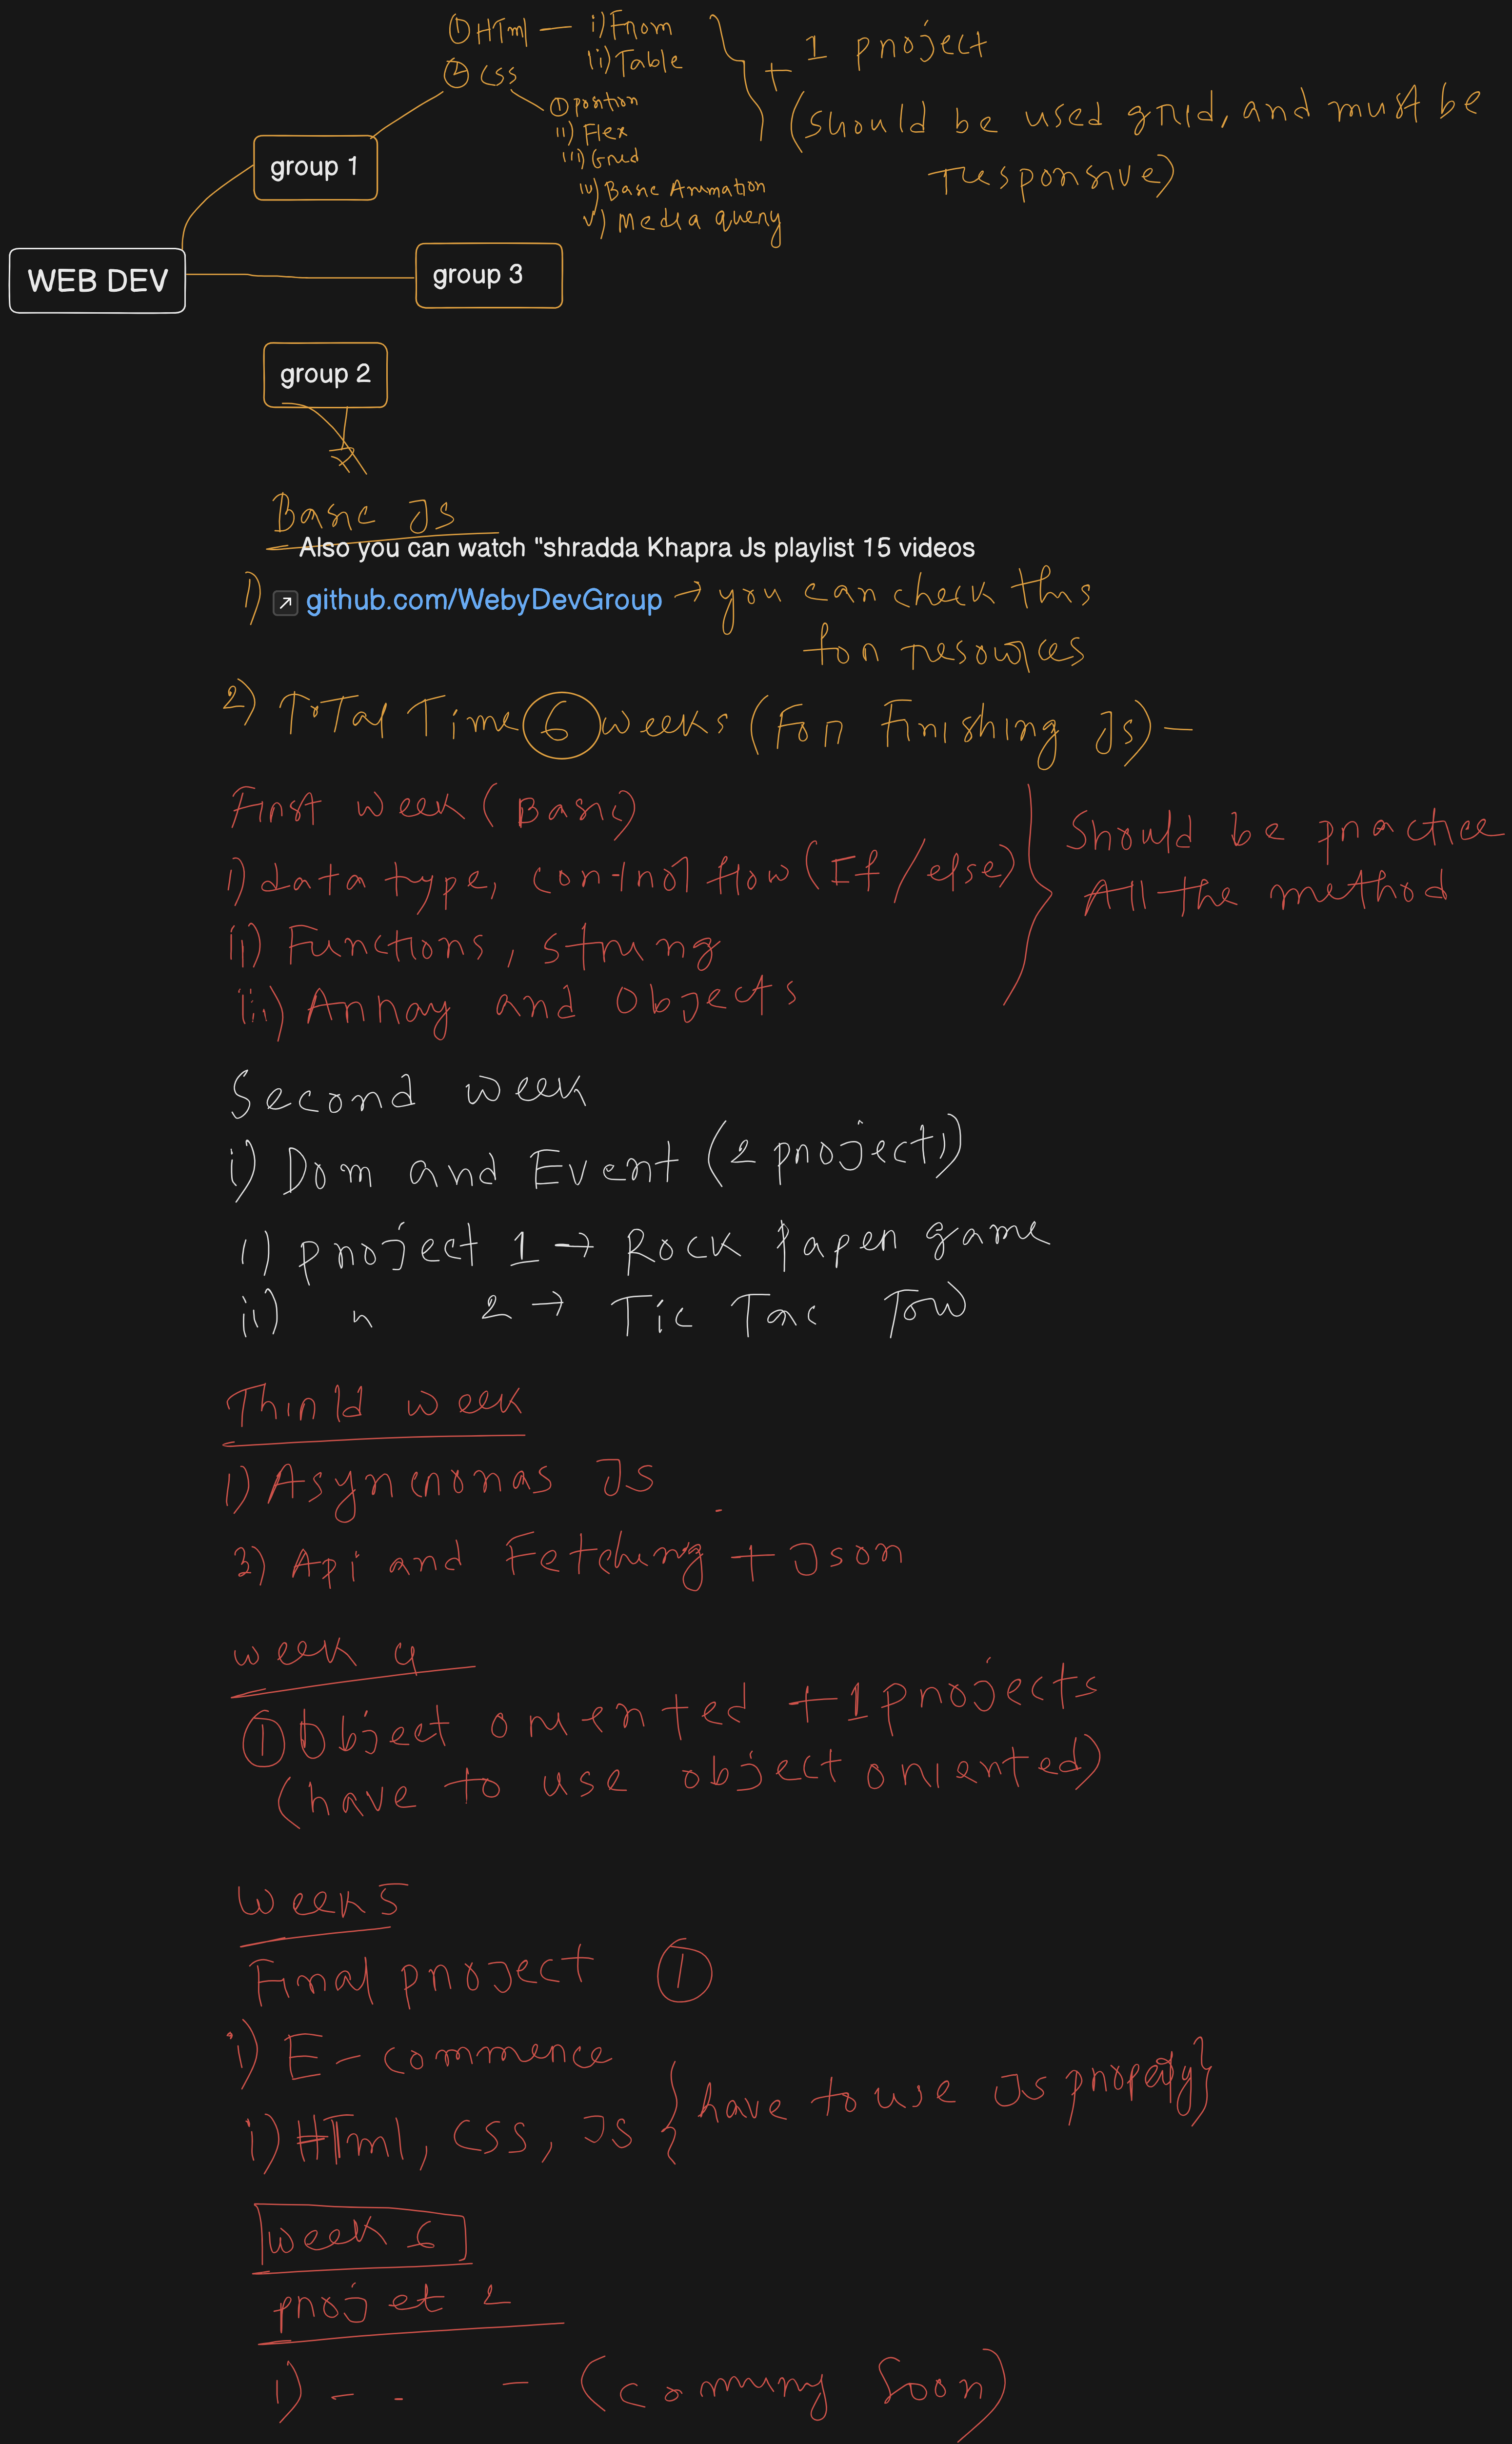 ① HTml — i) From
ii) Table
② Css
① position
ii) Flex
iii) Grid
iv) Basic Animation
v) Media query
+ 1 project
(should be used grid, and must be
responsive)
group 1
WEB DEV
group 3
group 2
Basic Js
Also you can watch "shradda Khapra Js playlist 15 videos
1) github.com/WebyDevGroup → you can check this
for resources
2) ToTal Time 6 weeks (For Finishing Js) —
First week (Basic)
i) data type, control flow (If / else)
ii) Functions, string
iii) Array and Objects
Should be practice
All the method
Second week
i) Dom and Event (2 project)
i) project 1 → Rock paper game
ii) " 2 → Tic Tac Tow
Thirld week
1) Asyncronas Js
2) Api and Fetching + Json
week 4
① Object oriented + 1 projects
(have to use object oriented)
week 5
Final project ①
i) E-commerce
ii) HTml, css, Js {have to use Js properly}
week 6
projet 2
i) - - - (coming Soon)